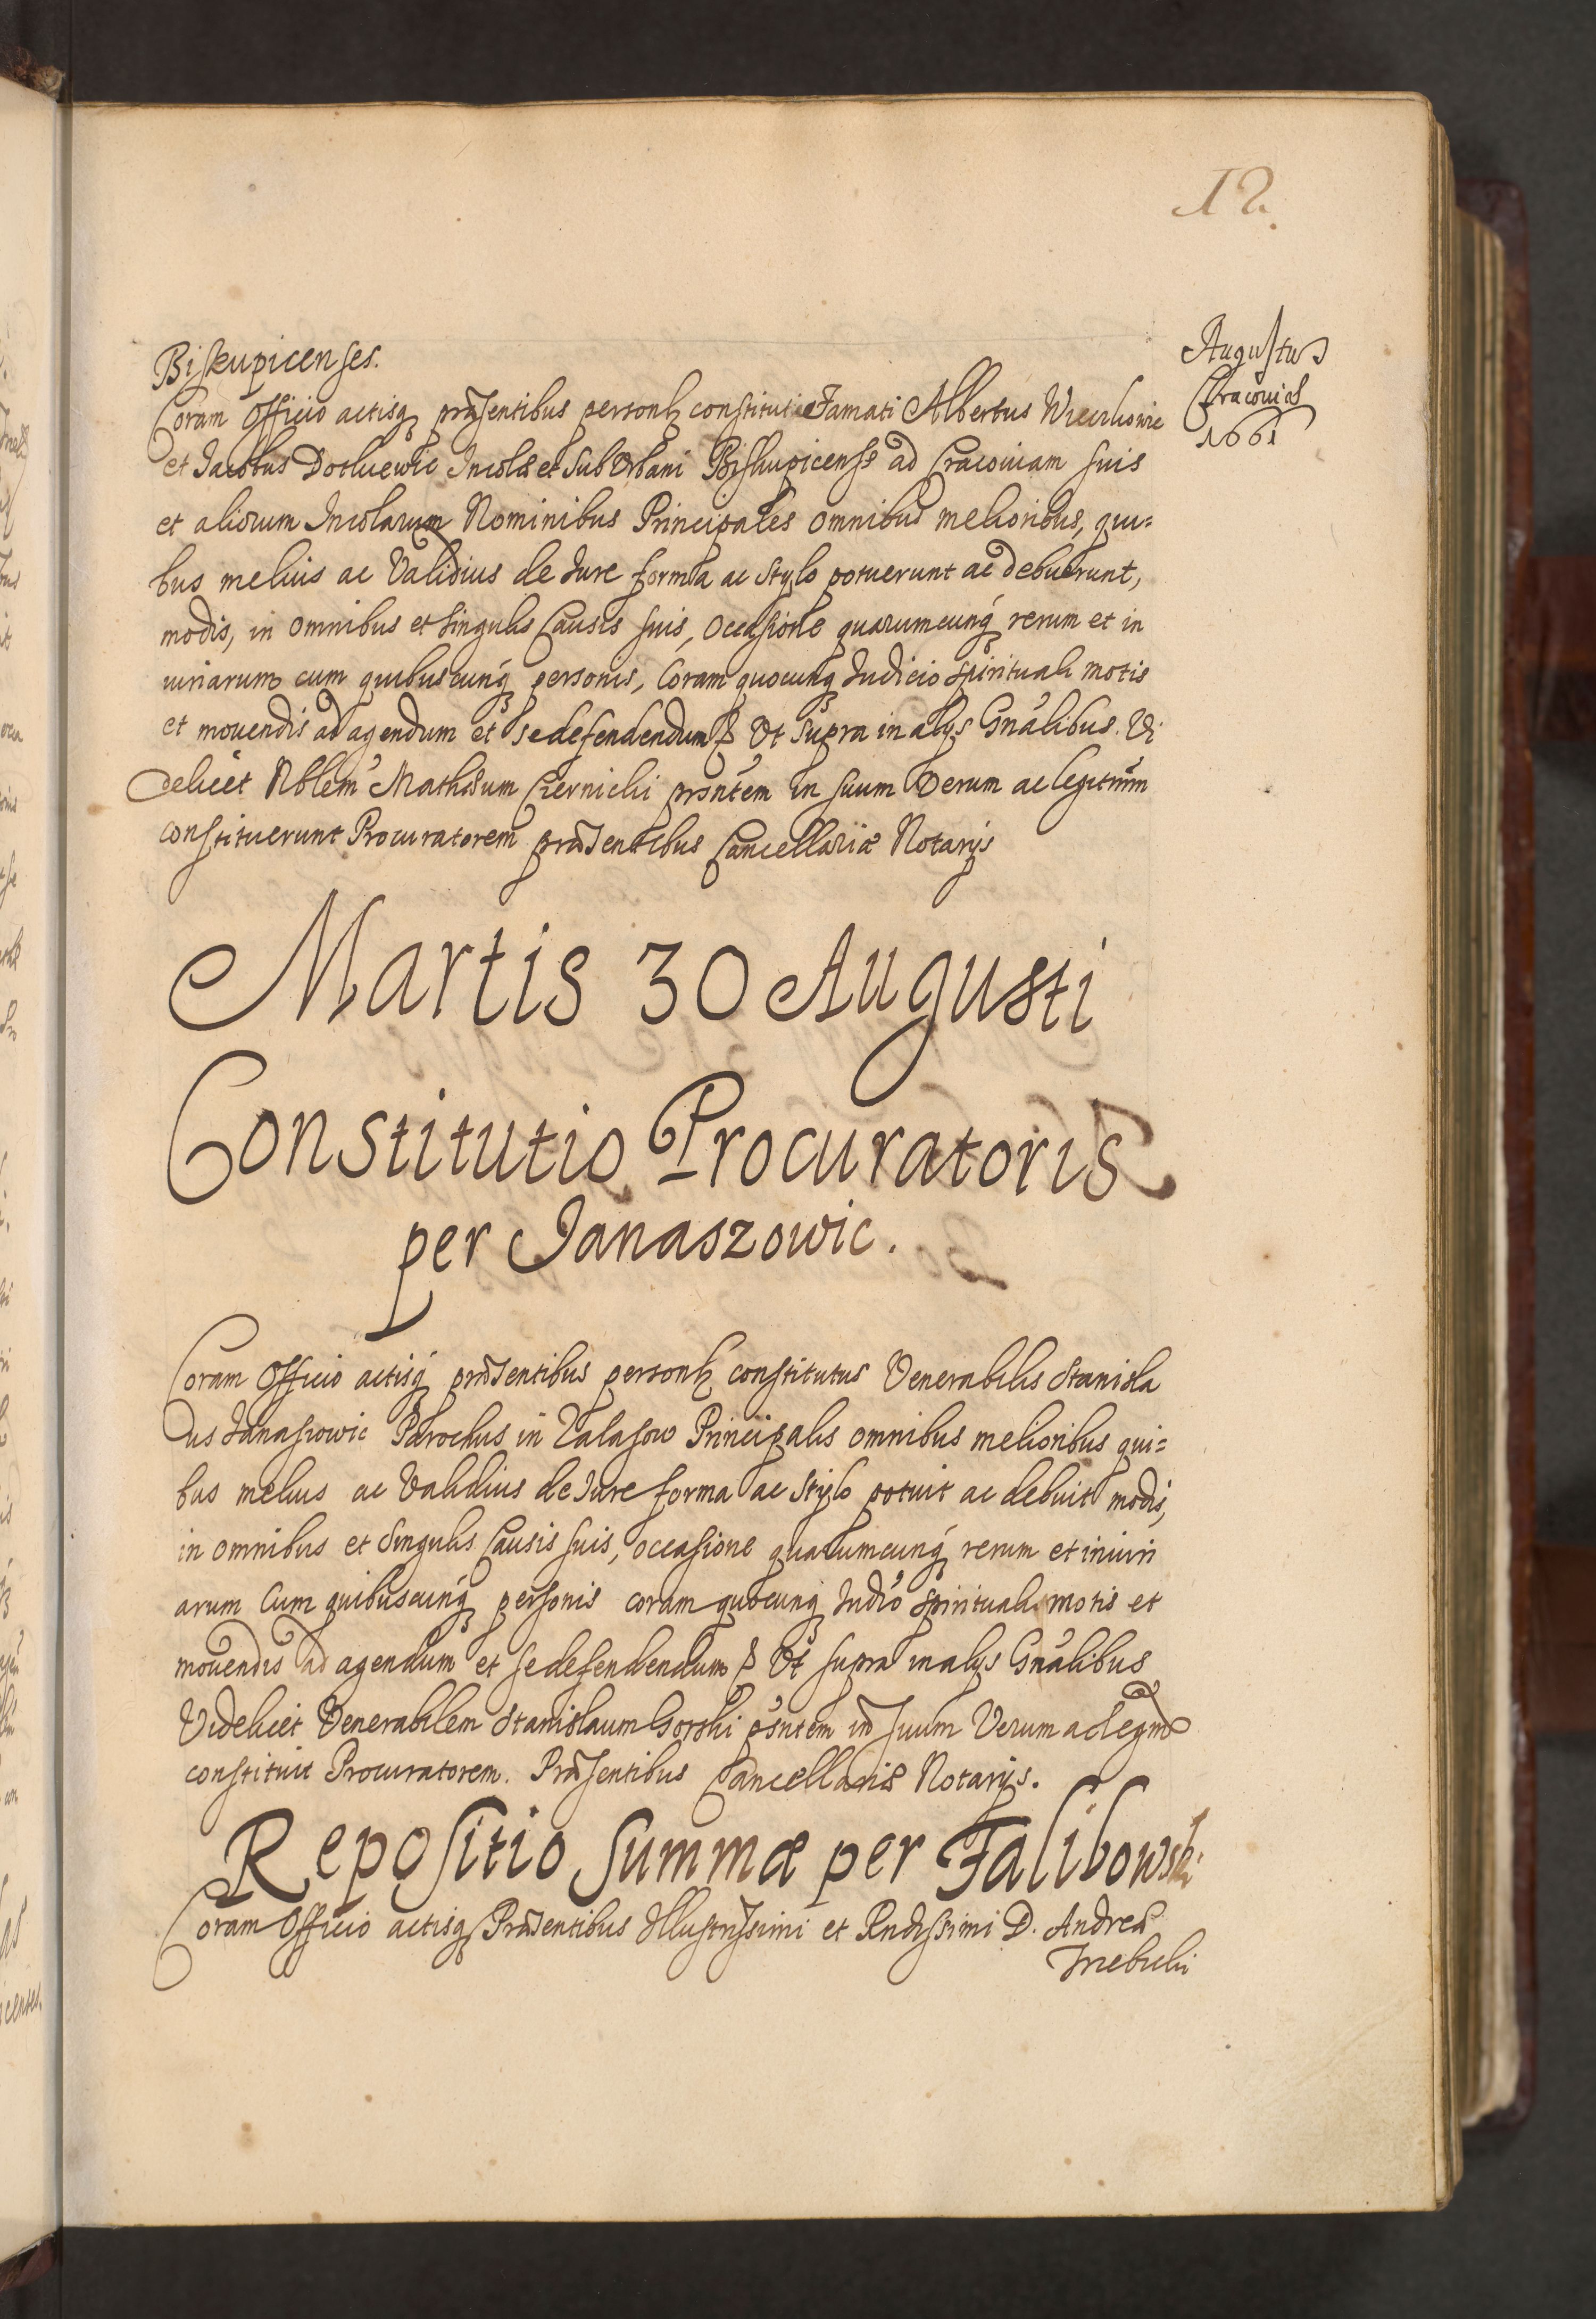 12.
Augustus
Cracoviæ
1661
Biskupicenses.
Coram Officio actisq́ præsentibus personlr constituti Famati Albertus
et Jacobus Incolæ et SubUrbani Biskupicenses ad Cracoviam suis
et aliorum Incolarum Nominibus Principales omnibus melioribus, qui=
bus melius ac Validius de Jure forma ac stylo potuerunt ac debuerunt,
modis, in omnibus et singulis Causis suis, occasione quarumcunq́ rerum et in
iuriarum cum quibuscunq́ personis, Coram quocunq́ Judicio spirituali motis
et movendis ad agendum et se defendendum Ut supra in alys Gnálibus. Vi
delicet Nblem Mathæum Czernicki prsntem in suum Verum ac legitmm
constituerunt Procuratorem præsentibus Cancellariæ Notarys
Martis 30 Augusti
Constitutio Procuratoris
per Janaszowic.
Coram Officio actisq́ præsentibus personlr constitutus Venerabilis Stanisla
us Janaszowic Parochus in Zalasow Principalis omnibus melioribus qui=
bus melius ac Validius de Jure forma ac stylo potuit ac debuit modis,
in omnibus et singulis Causis suis, occasione quarumcunq́ rerum et iniuri
arum Cum quibuscunq́ personis coram quocunq́ Judio Spirituali motis et
movendis ad agendum et se defendendum Ut supra in alys Gnálibus
Videlicet Venerabilem Stanislaum Gorski psntem in suum Verum ac legmm
constituit Procuratorem. Præsentibus Cancellariæ Notarys.
Repositio summæ per Falibowski
Coram Officio actisq́ Præsentibus Illustrissimi et Rndissimi D. Andreæ
Trzebicki